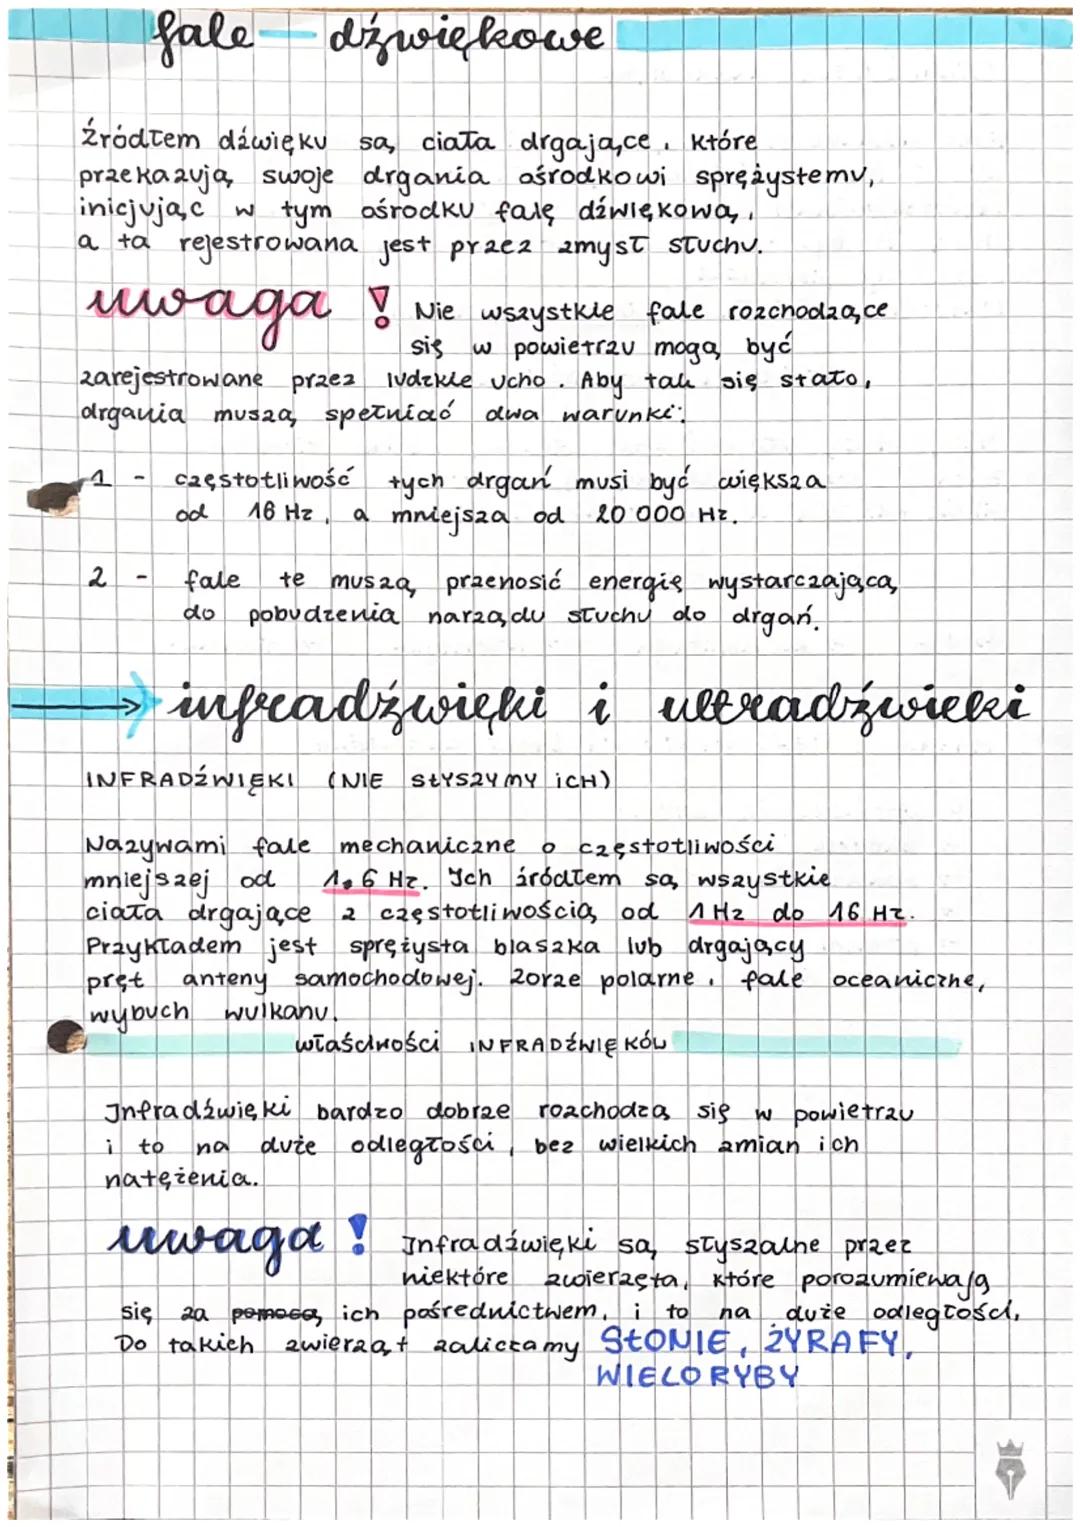 fale dźwiękowe
źródłem dźwięku są ciała drgające, które
przekazują swoje drgania ośrodkowi sprężystemu,
inicjując w tym ośrodku falę dźwiękową,
a ta rejestrowana jest przez zmysł słuchu.
uwaga ! Nie wszystkie fale rozchodzące
się w powietrzu mogą być
zarejestrowane przez ludzkie ucho. Aby tak się stało,
drgania muszą spełniać dwa warunki:
1 - częstotliwość tych drgań musi być większa
od 16 Hz, a mniejsza od 20 000 Hz.
2 - fale te muszą przenosić energię wystarczającą
do pobudzenia narządu słuchu do drgań.
infradźwięki i ultradźwięki
INFRADŹWIĘKI (NIE SŁYSZYMY ICH)
Nazywami fale mechaniczne o częstotliwości
mniejszej od 1,6 Hz. Ich źródłem są wszystkie
ciała drgające z częstotliwością od 1 Hz do 16 Hz.
Przykładem jest sprężysta blaszka lub drgający
pręt anteny samochodowej. Zorze polarne, fale oceaniczne,
wybuch wulkanu.
właściwości INFRADŹWIĘKÓW
Infradźwięki bardzo dobrze rozchodzą się w powietrzu
i to na duże odległości, bez wielkich zmian ich
natężenia.
uwaga ! Infradźwięki są słyszalne przez
niektóre zwierzęta, które porozumiewają
się za pomocą ich pośrednictwem, i to na duże odległości.
Do takich zwierząt zaliczamy SŁONIE, ŻYRAFY,
WIELORYBY